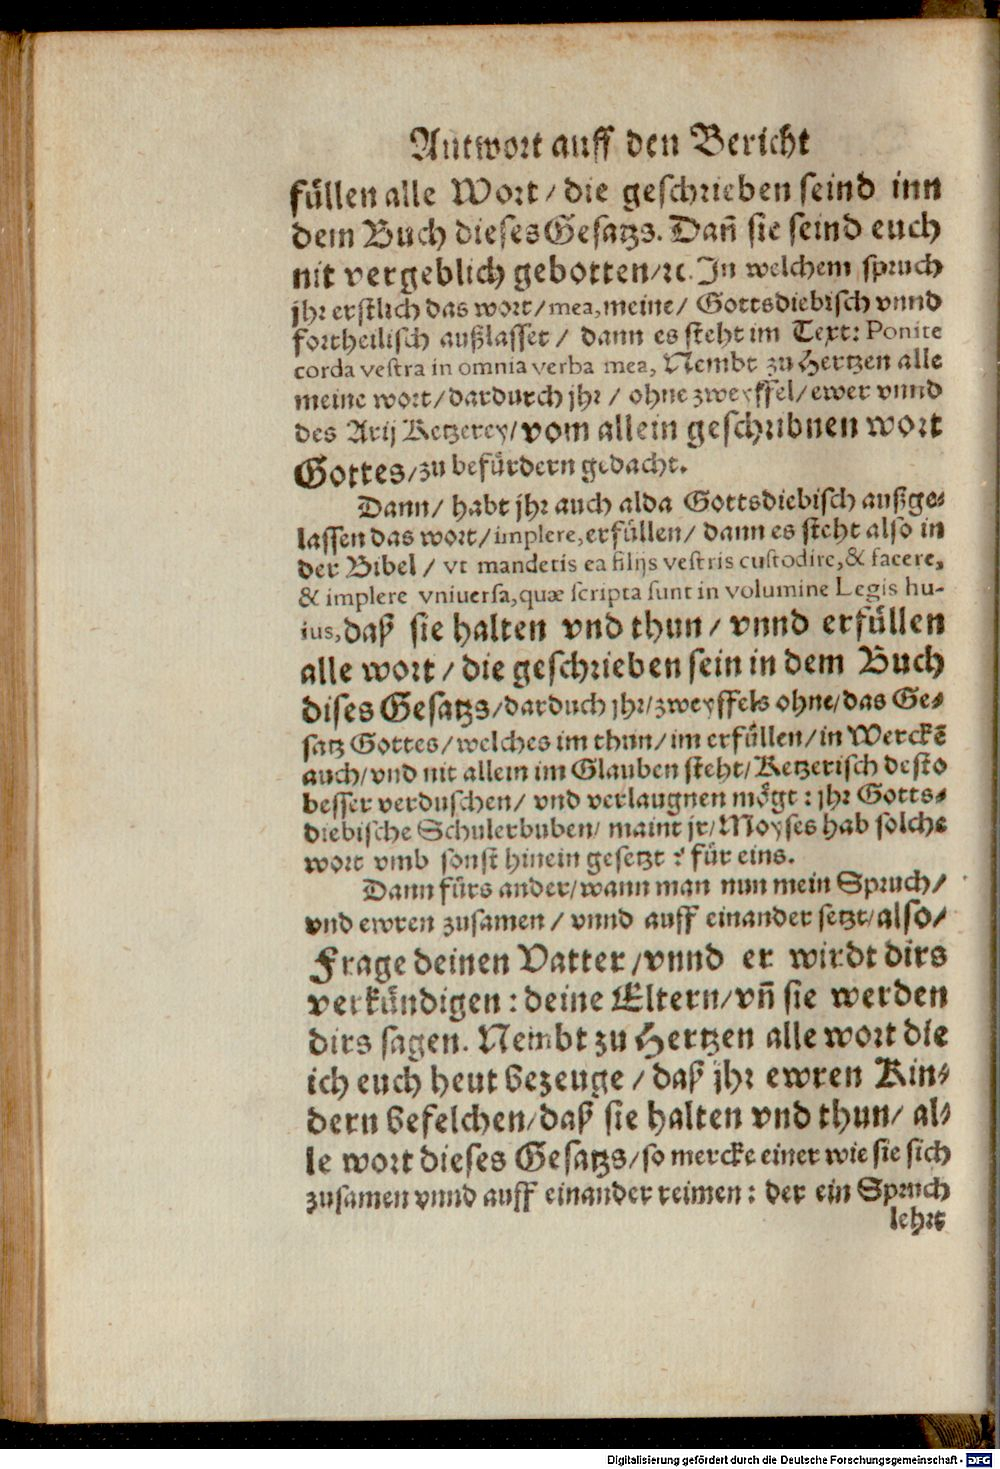 Antwort auff den Bericht
füllen alle Wort / die geschrieben seind inn
dem Buch dieses Gesatzs. Dañ sie seind euch
nit vergeblich gebotten/ꝛc. In welchem spruch
jhr erstlich das wort/mea, meine/ Gottsdiebisch vnnd
fortheilisch außlasset / dann es steht im Text: Ponite
corda vestra in omnia verba mea, Nembt zu Hertzen alle
meine wort/dardurch jhr / ohne zweyffel/ewer vnnd
des Arij Ketzerey/vom allein geschribnen wort
Gottes/zu befürdern gedacht.
Dann/ habt jhr auch alda Gottsdiebisch außge⸗
lassen das wort/implere, erfüllen/ dann es steht also in
der Bibel / vt mandetis ea filijs vestris custodire, & facere,
& implere vniuersa, quæ scripta sunt in volumine Legis hu-
ius, daß sie halten vnd thun/ vnnd erfüllen
alle wort / die geschrieben sein in dem Buch
dises Gesatzs/darduch jhr/zweyffels ohne/das Ge⸗
satz Gottes/welches im thun/im erfüllen/in Werckẽ
auch/vnd nit allein im Glauben steht/Ketzerisch desto
besser verduschen/ vnd verlaugnen mögt: jhr Gotts⸗
diebische Schulerbuben/ maint jr/Moyses hab solche
wort vmb sonst hinein gesetzt? für eins.
Dann fürs ander/wann man nun mein Spruch/
vnd ewren zusamen / vnnd auff einander setzt/also/
Frage deinen Vatter/vnnd er wirdt dirs
verkündigen: deine Eltern/vñ sie werden
dirs sagen. Nembt zu Hertzen alle wort die
ich euch heut bezeuge / daß jhr ewren Kin⸗
dern befelchen/daß sie halten vnd thun/ al⸗
le wort dieses Gesatzs/so mercke einer wie sie sich
zusamen vnnd auff einander reimen: der ein Spruch
lehrt
Digitalisierung gefördert durch die Deutsche Forschungsgemeinschaft - DFG